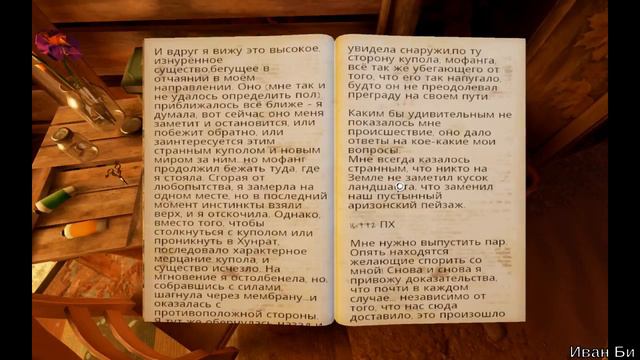 И вдруг я вижу это высокое,
изнурённое
существо,бегущее в
отчаянии в моём
направлении. Оно (мне так и
не удалось определить пол)
приближалось всё ближе – я
думала, вот сейчас оно меня
заметит и остановится, или
побежит обратно, или
заинтересуется этим
странным куполом и новым
миром за ним, но мофанг
продолжил бежать туда, где
я стояла. Сгорая от
любопытства, я замерла на
одном месте, но в последний
момент инстинкты взяли
верх, и я отскочила. Однако,
вместо того, чтобы
столкнуться с куполом или
проникнуть в Хунрат,
последовало характерное
мерцание купола, и
существо исчезло. На
мгновение я остолбенела, но,
собравшись с силами,
шагнула через мембрану и
оказалась с
противоположной стороны.
Я тут же обернулась назад и
увидела снаружи,по ту
сторону купола, мофанга,
всё так же убегающего от
того, что его так напугало,
будто он не преодолевал
преграду на своем пути.
Каким бы удивительным не
показалось мне
происшествие, оно дало
ответы на кое-какие мои
вопросы.
Мне всегда казалось
странным, что никто на
Земле не заметил кусок
ландшафта, что заменил
наш пустынный
аризонский пейзаж.
ПХ
Мне нужно выпустить пар.
Опять находятся
желающие спорить со
мной! Снова и снова я
привожу доказательства,
что почти в каждом
случае... независимо от
того, что нас сюда
доставило, это произошло
Иван Би